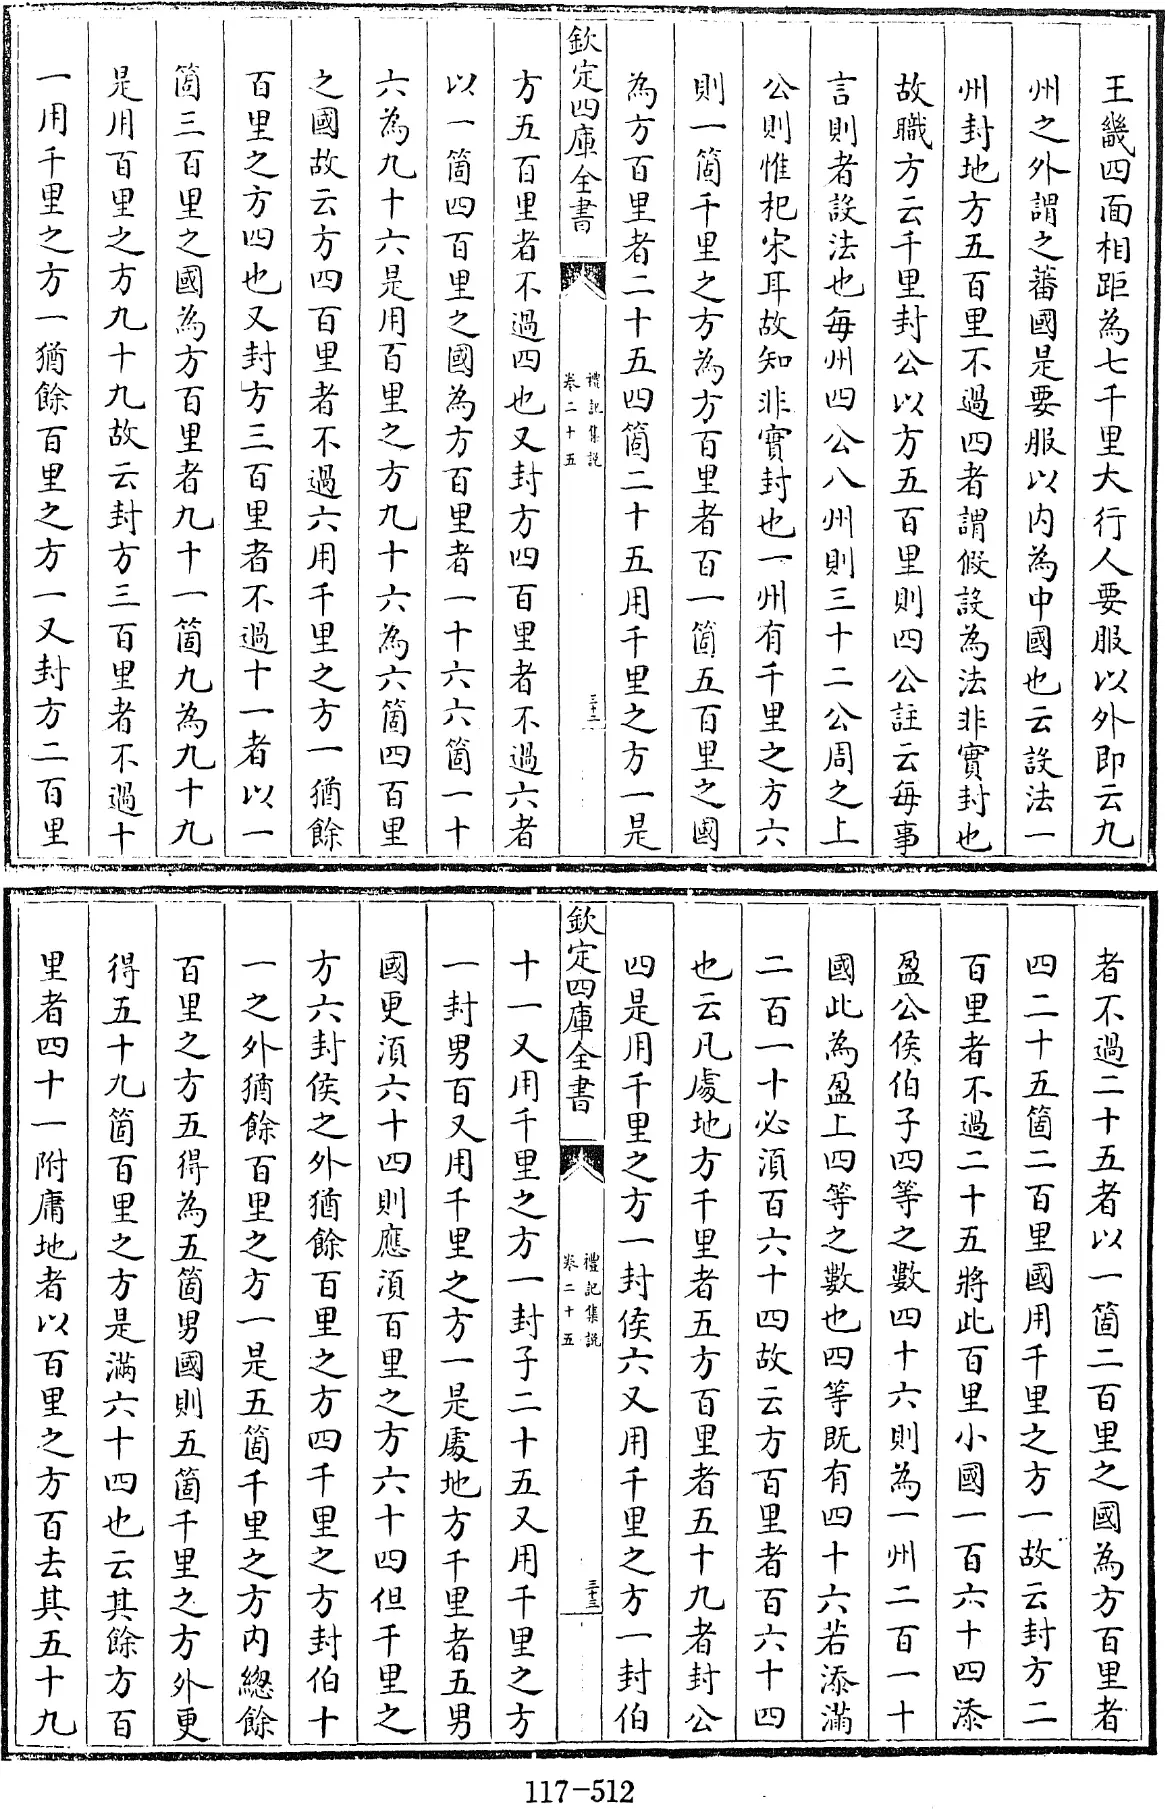 王畿四面相距為七千里大行人要服以外即云九
州之外謂之蕃國是要服以内為中國也云設法一
州封地方五百里不過四者謂假設為法非實封也
故職方云千里封公以方五百里則四公註云每事
言則者設法也每州四公八州則三十二公周之上
公則惟杞宋耳故知非實封也一州有千里之方六
則一箇千里之方為方百里者百一箇五百里之國
為方百里者二十五四箇二十五用千里之方一是
欽定四庫全書
禮記集説
卷二十五
三十二
方五百里者不過四也又封方四百里者不過六者
以一箇四百里之國為方百里者一十六六箇一十
六為九十六是用百里之方九十六為六箇四百里
之國故云方四百里者不過六用千里之方一猶餘
百里之方四也又封方三百里者不過十一者以一
箇三百里之國為方百里者九十一箇九為九十九
是用百里之方九十九故云封方三百里者不過十
一用千里之方一猶餘百里之方一又封方二百里
者不過二十五者以一箇二百里之國為方百里者
四二十五箇二百里國用千里之方一故云封方二
百里者不過二十五將此百里小國一百六十四添
盈公侯伯子四等之數四十六則為一州二百一十
國此為盈上四等之數也四等既有四十六若添滿
二百一十必湏百六十四故云方百里者百六十四
也云凡處地方千里者五方百里者五十九者封公
四是用千里之方一封侯六又用千里之方一封伯
欽定四庫全書
禮記集説
卷二十五
三十三
十一又用千里之方一封子二十五又用千里之方
一封男百又用千里之方一是處地方千里者五男
國更湏六十四則應湏百里之方六十四但千里之
方六封侯之外猶餘百里之方四千里之方封伯十
一之外猶餘百里之方一是五箇千里之方内總餘
百里之方五得為五箇男國則五箇千里之方外更
得五十九箇百里之方是滿六十四也云其餘方百
里者四十一附庸地者以百里之方百去其五十九
117-512